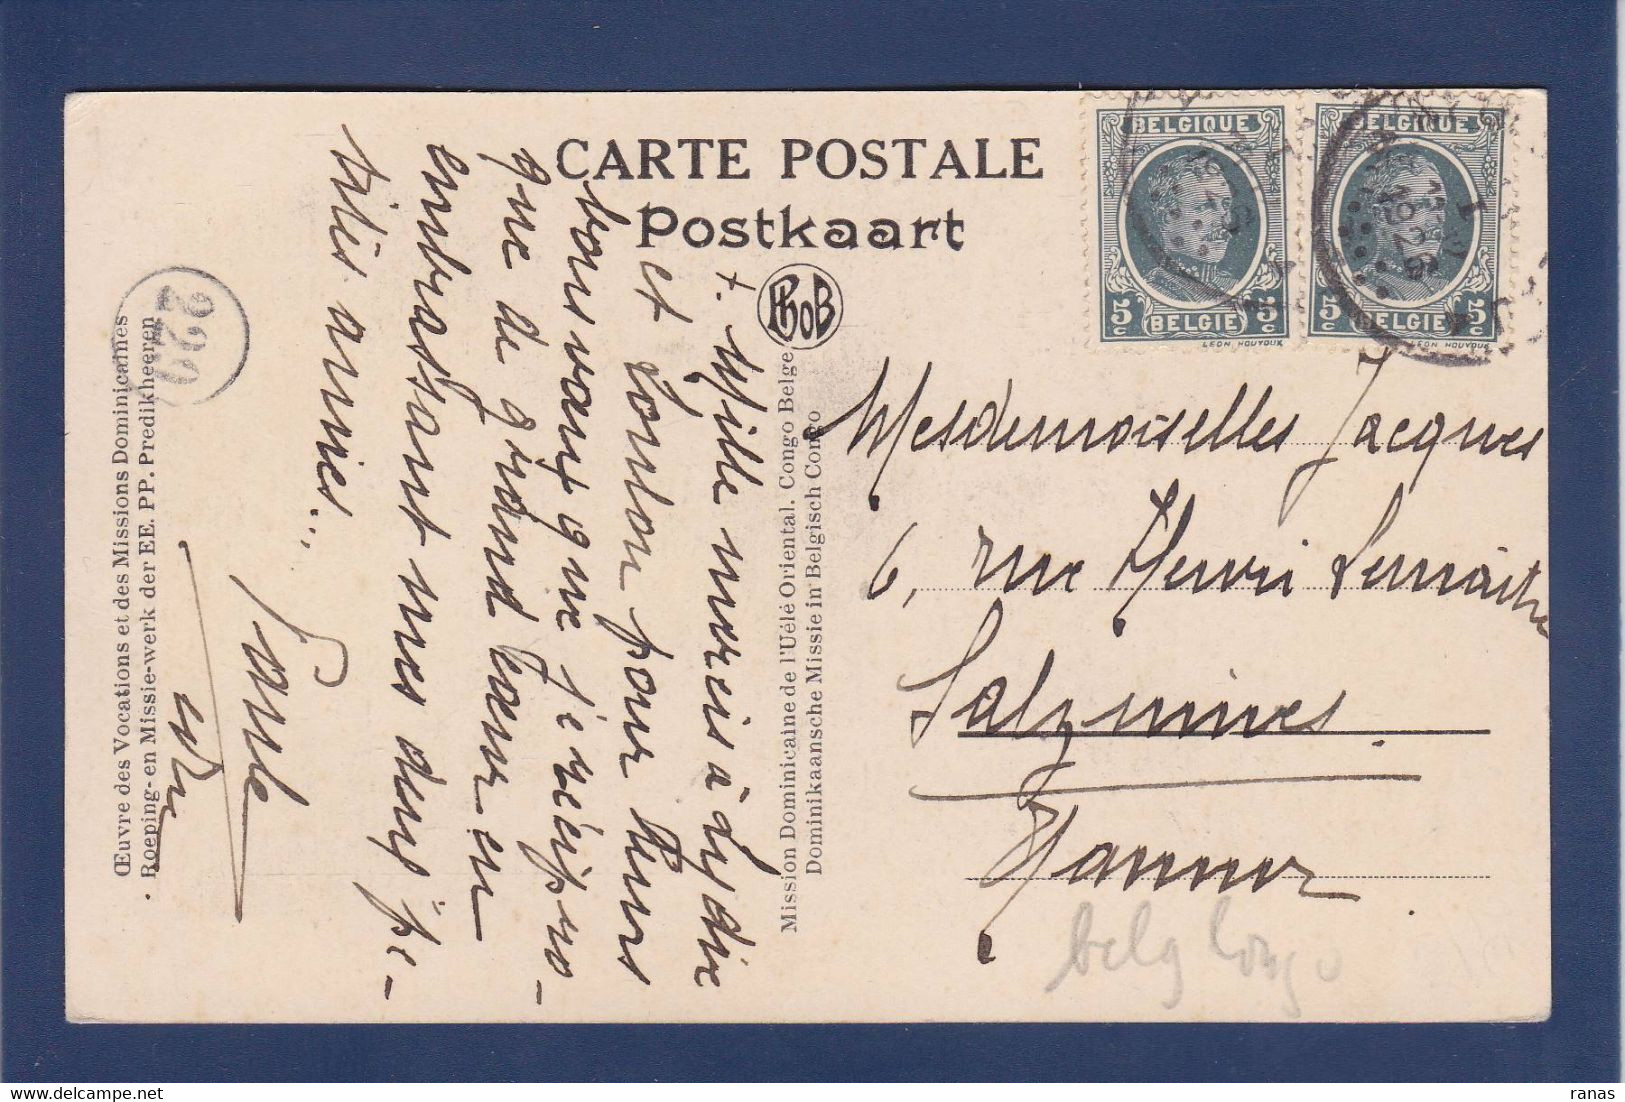 CARTE POSTALE
Postkaart
PhoB
BELGIQUE
5c BELGIE 5c
LEON HOUYOUX
BELGIQUE
5c BELGIE 5c
LEON HOUYOUX
220
Œuvre des Vocations et des Missions Dominicaines
Roeping- en Missie-werk der EE. PP. Predikheeren
Mission Dominicaine de l'Uélé Oriental. Congo Belge
Dominikaansche Missie in Belgisch Congo
+. Mille mercis à Lydie
et Loulou pour leurs
bons vœux que je récipro-
que de grand cœur en
embrassant mes deux pe-
tites amies...
Paule
Mesdemoiselles Jacques
6, rue Henri Lemaitre
Salzinnes.
Namur
belg Congo
ranas